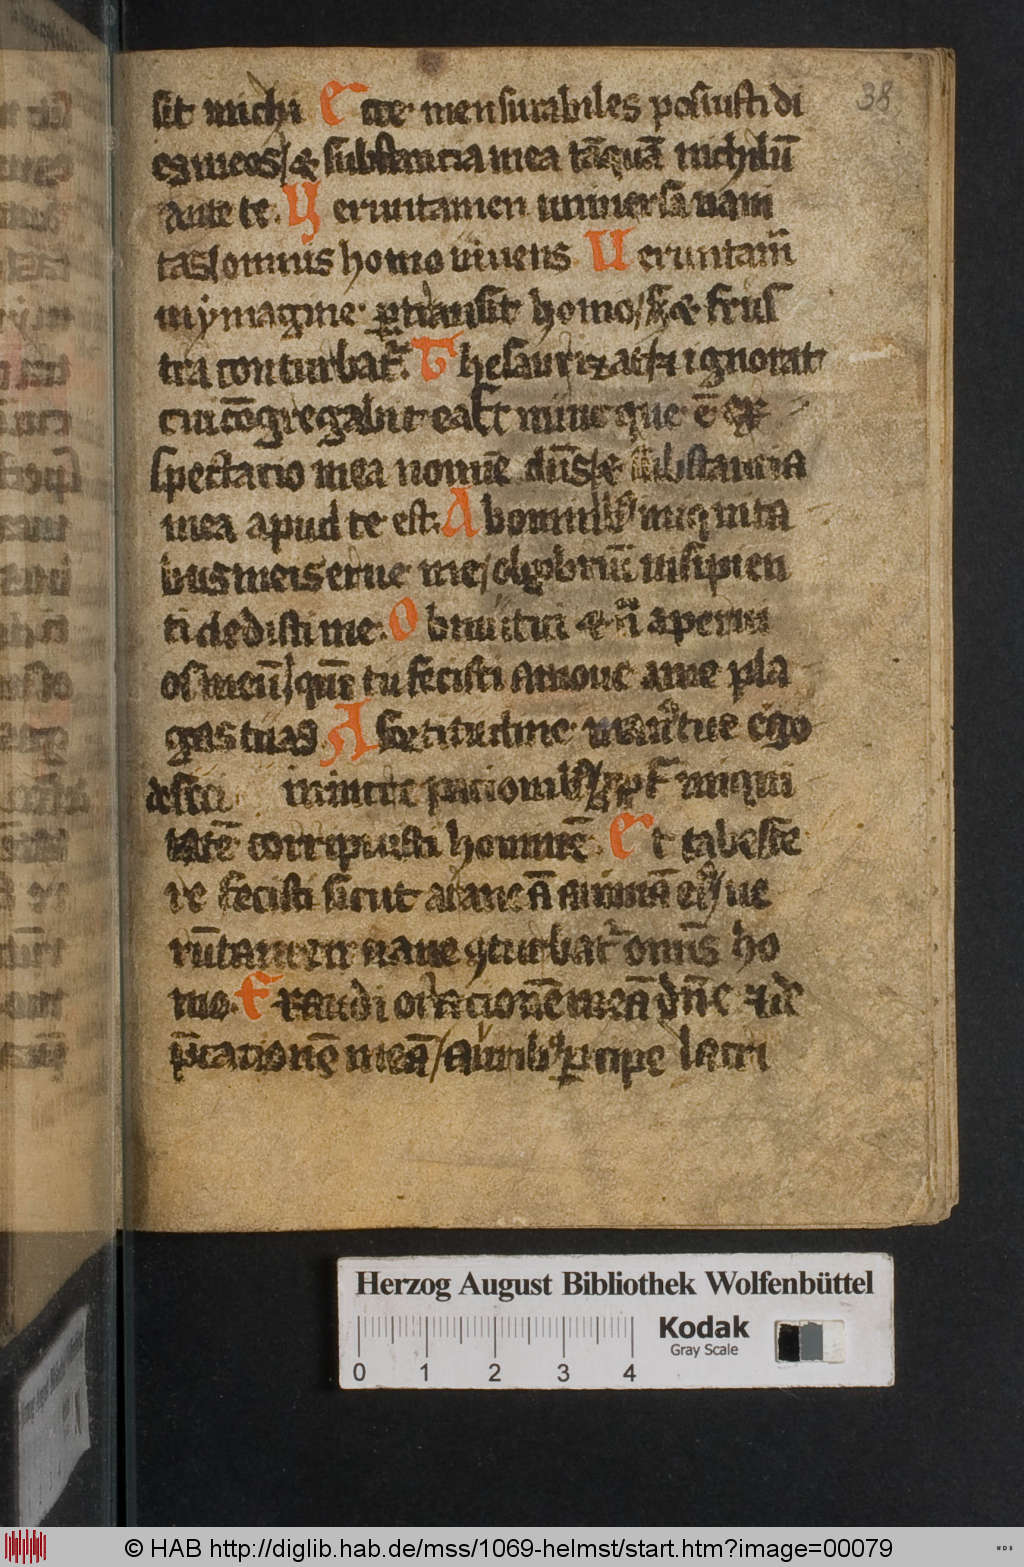 38
sit michi Ecce mensurabiles posiuisti di
es meos / & substancia mea tāquā nichilū
ante te. Veruntamen uniuersa uani
tas / omnis homo uiuens Ueruntam̄
in ymagine ꝑtransit homo / s; & frus
tra conturbat᷑. Thesaurizat & ignorat
cui cōgregabit ea Et nunc que ē ex
spectatio mea nonne dn̄s / & substancia
mea apud te est. Ab omnibꝰ iniquita
bus meis erue me / obprobriū insipien
ti dedisti me. Obmutui & n̄ aperui
os meū / qm̄ tu fecisti amoue a me pla
gas tuas A fortitudine manꝰ tue ego
defeci in increpacionibꝰ / ꝓpt̄ iniqui
tatē corripuisti hominē. Et tabesce
re fecisti sicut araneā animā eiꝰ / ue
rūtamen uane ꝯturbat᷑ omīs ho
mo. Exaudi orationē meā dn̄e & de
p̄cationē meā / auribꝰ ꝑcipe lacri
Herzog August Bibliothek Wolfenbüttel
0 1 2 3 4
Kodak
Gray Scale
© HAB http://diglib.hab.de/mss/1069-helmst/start.htm?image=00079